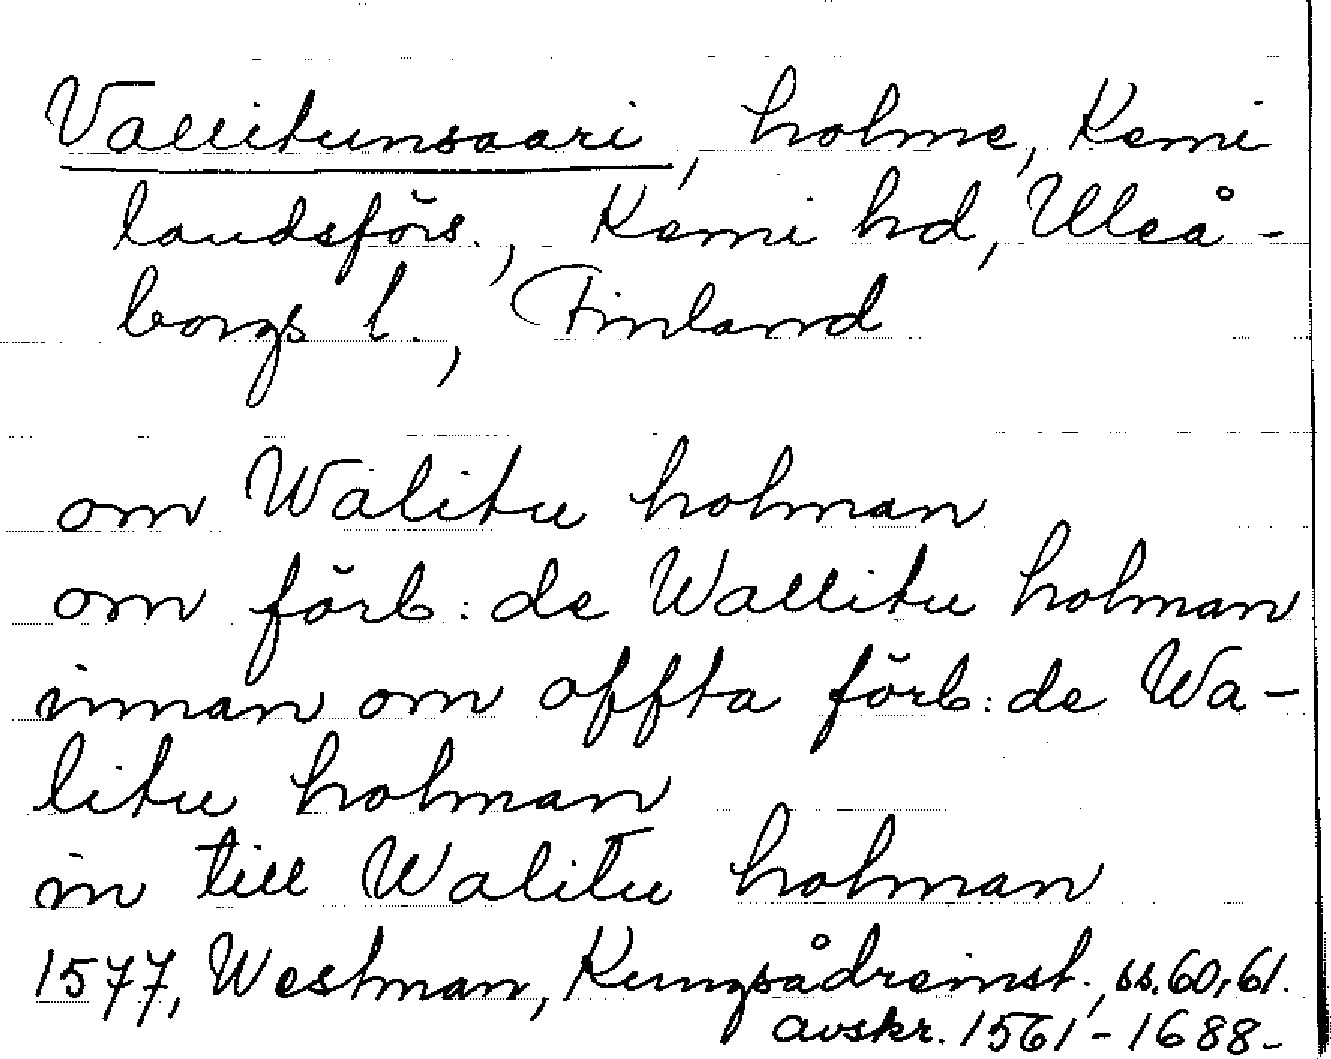 Vallitunsaari, holme, Kemi
landsförs., Kemi hd, Uleå-
borgs l., Finland
om Walitu holman
om förb: de Wallitu holman
innan om offta förb: de Wa-
litu holman
in till Walitu holman
1577, Westman, Kungsådreinst., ss. 60, 61.
avskr. 1561-1688-